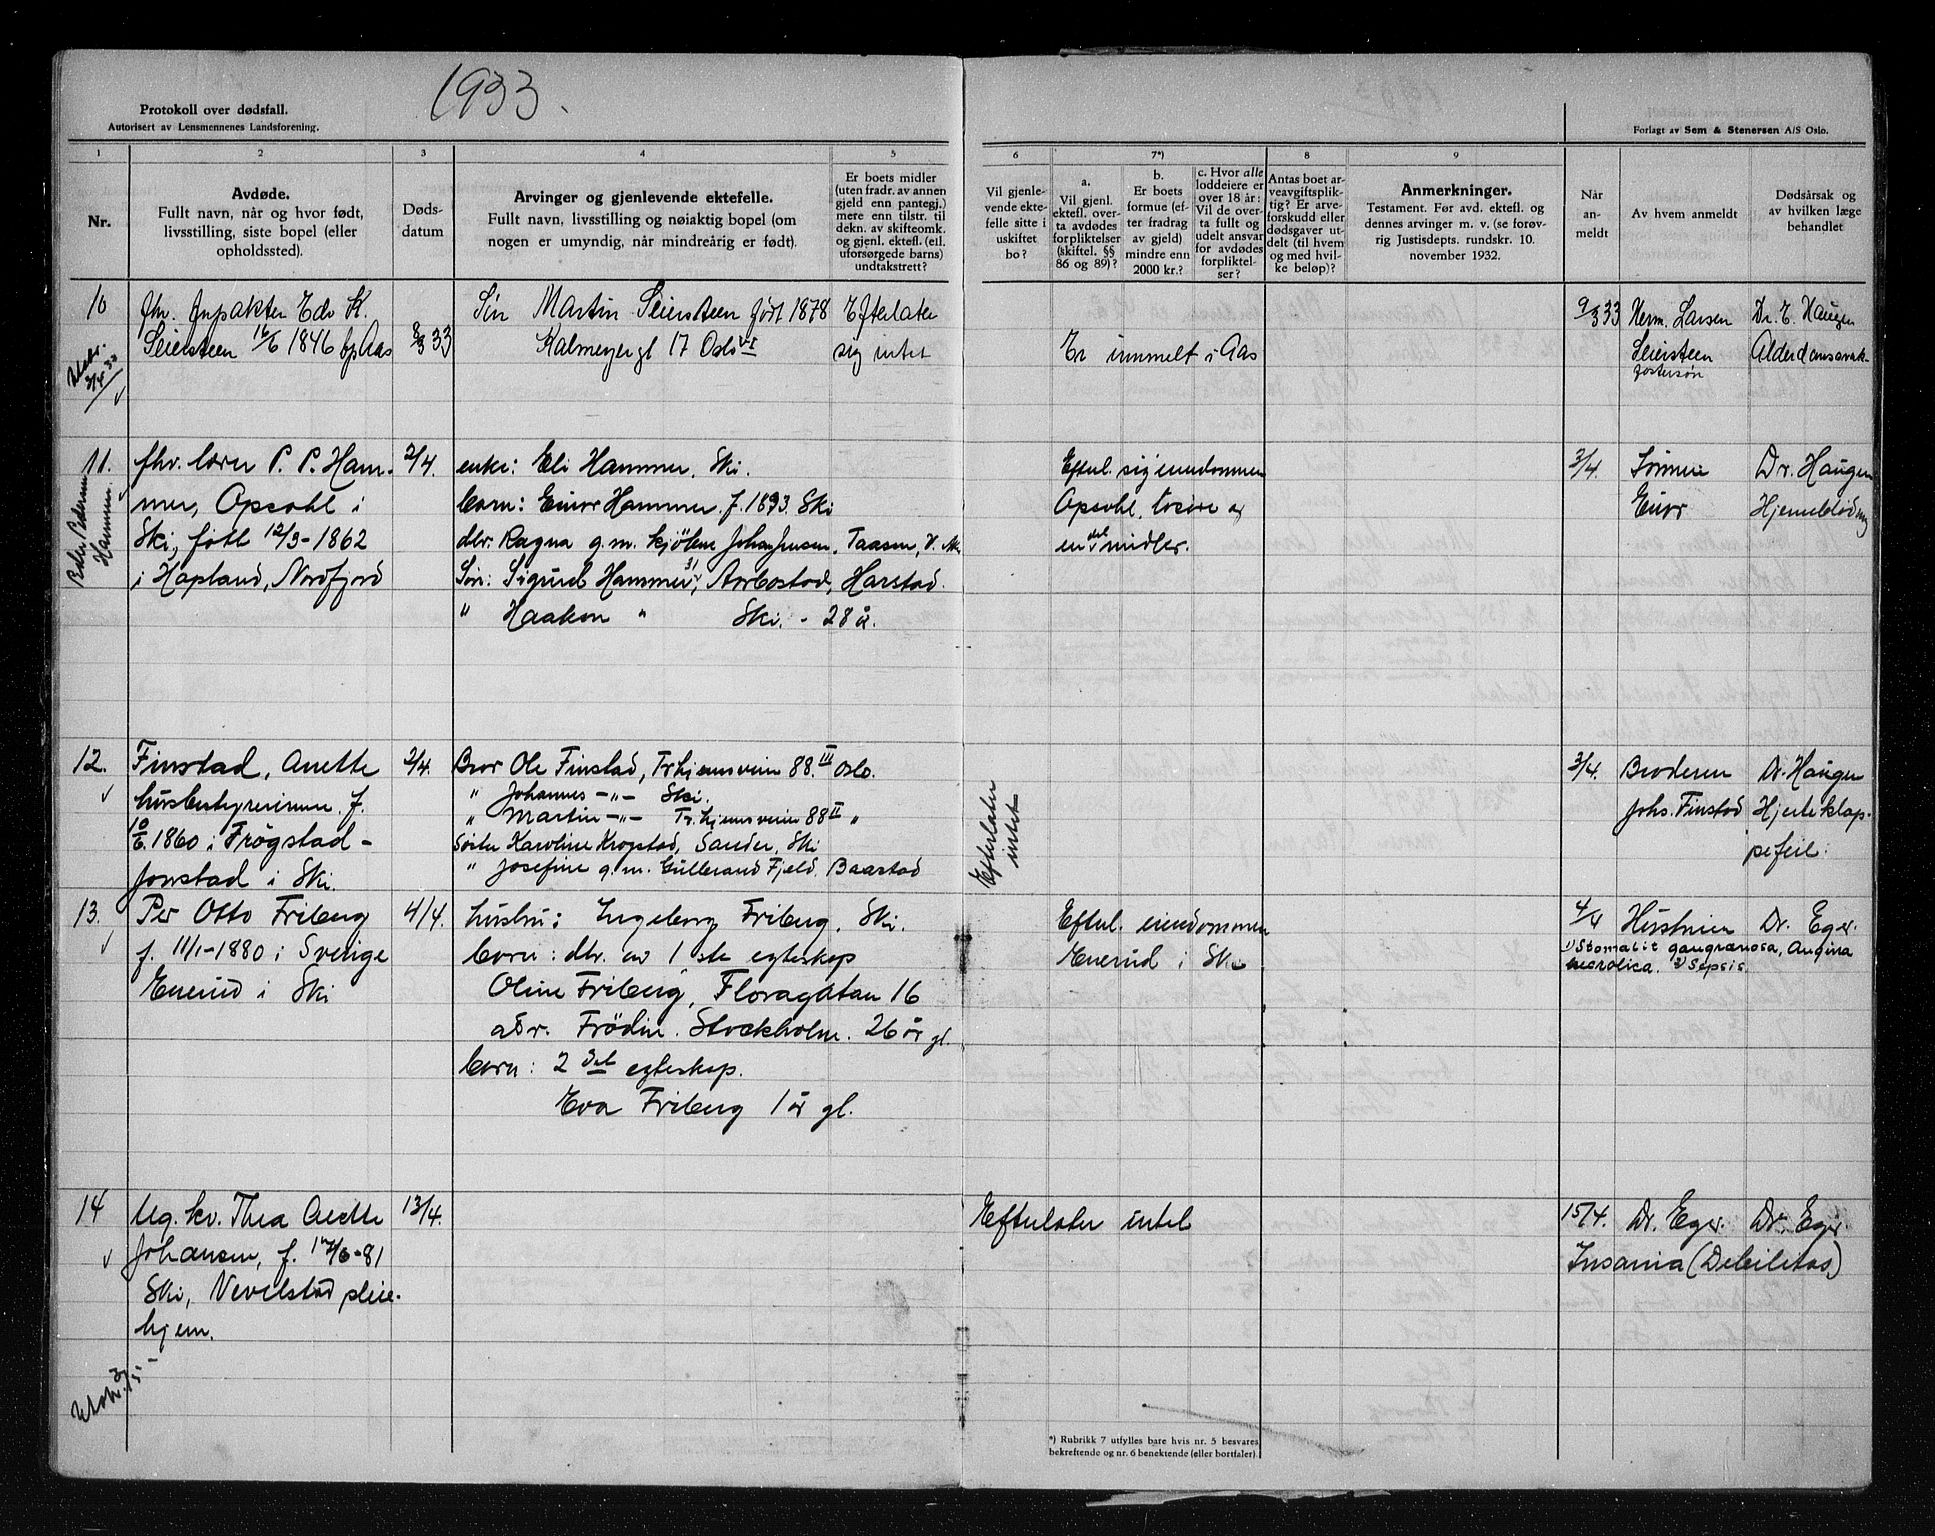 1933.
Protokoll over dødsfall.
Autorisert av Lensmennenes Landsforening.
Forlagt av Sem & Stenersen A/S Oslo.
1 2 3 4 5 6 7*) 8 9
Nr.
Avdøde.
Fullt navn, når og hvor født,
livsstilling, siste bopel (eller
opholdssted).
Døds-
datum
Arvinger og gjenlevende ektefelle.
Fullt navn, livsstilling og nøiaktig bopel (om
nogen er umyndig, når mindreårig er født).
Er boets midler
(uten fradr. av annen
gjeld enn pantegj.)
mere enn tilstr. til
dekn. av skifteomk.
og gjenl. ektef. (eil.
uforsørgede barns)
undtakstrett?
Vil gjenle-
vende ekte-
felle sitte i
uskiftet
bo?
a.
Vil gjenl.
ektefl. over-
ta avdødes
forpliktelser
(skiftel. §§
86 og 89)?
b.
Er boets
formue (ef-
ter fradrag
av gjeld)
mindre enn
2000 kr.?
c. Hvor alle
loddeiere er
over 18 år:
Vil de over-
ta fullt og
udelt ansvar
for avdødes
forpliktel-
ser?
Antas boet ar-
veavgiftsplik-
tig? Er arve-
forskudd eller
dødsgaver ut-
delt (til hvem
og med hvil-
ke beløp)?
Anmerkninger.
Testament. Før avd. ektefl. og
dennes arvinger m. v. (se forøv-
rig Justisdepts. rundskr. 10.
november 1932.
Når
an-
meldt
Av hvem anmeldt
Dødsårsak og
av hvilken læge
behandlet
10 fhv. Edv K. Søn Martin Seiersteen født 1878 Efterlater 9/3 33 Herm. Larsen Dr. E. Haugen
Seiersteen 16/6 1846 bp Aas 8/3 33 Kalmeyergt 17 Oslo sig intet Er inmelt i Aas Seiersteen
fostersøn
11. fhv. lærer P. P. Ham- 2/4. enke: Eli Hammer. Ski. Efterl. sig eiendommen 3/4. Sønnen Dr. Haugen
Peder Pedersen
Hammer.
mer, Opsahl i barn: Einar Hammer. f. 1893 Ski Opsahl, løsøre og Einar Hjerneblødning
Ski, født 12/3-1862 dtr. Ragna g. m. Johan Jensen, Taasen, V. Ak. en del midler.
i Hopland, Nordfjord Søn: Sigurd Hammer, 31 år, Aarbostad, Harstad.
" Haakon " Ski. - 28 år.
12. Finstad, Anette 2/4. Bror Ole Finstad, Trhjemsveien 88. III Oslo. 3/4. Broderen Dr. Haugen
husbestyrerinne f. " Johannes -"- Ski. Johs. Finstad Hjerteklap-
10/6. 1860 i Frogstad- " Martin -"- Tr.hjemsveien 88 II " pefeil.
Søster Karoline Krogstad, Sander, Ski
jonstad i Ski. " Josefine g. m. Gulbrand Fjeld. Baastad
Efterlater
intet
13. Per Otto Friberg 4/4. hustru: Ingeborg Friberg. Ski. Efterl. eiendommen 4/4 Hustruen Dr. Eger.
f. 11/1-1880 i Sverige barn: dtr. av 1 ste egteskap Enerud i Ski 1) Stomatit gangrænosa, Angina
necrotica. 2) Sepsis.
Enerud i Ski Oline Friberg, Floragatan 16
adr. Frödin. Stockholm. 26 år gl.
barn: 2 det egteskap.
Eva Friberg 1 år gl.
14 Ug. kv. Thea Anette 13/4. Efterlater intet 15/4. Dr. Eger. Dr. Eger.
Johansen, f. 81 Insania (Debilitas)
Ski, Nevelstad pleie-
hjem.
*) Rubrikk 7 utfylles bare hvis nr. 5 besvares
bekreftende og nr. 6 benektende (eller bortfaller).